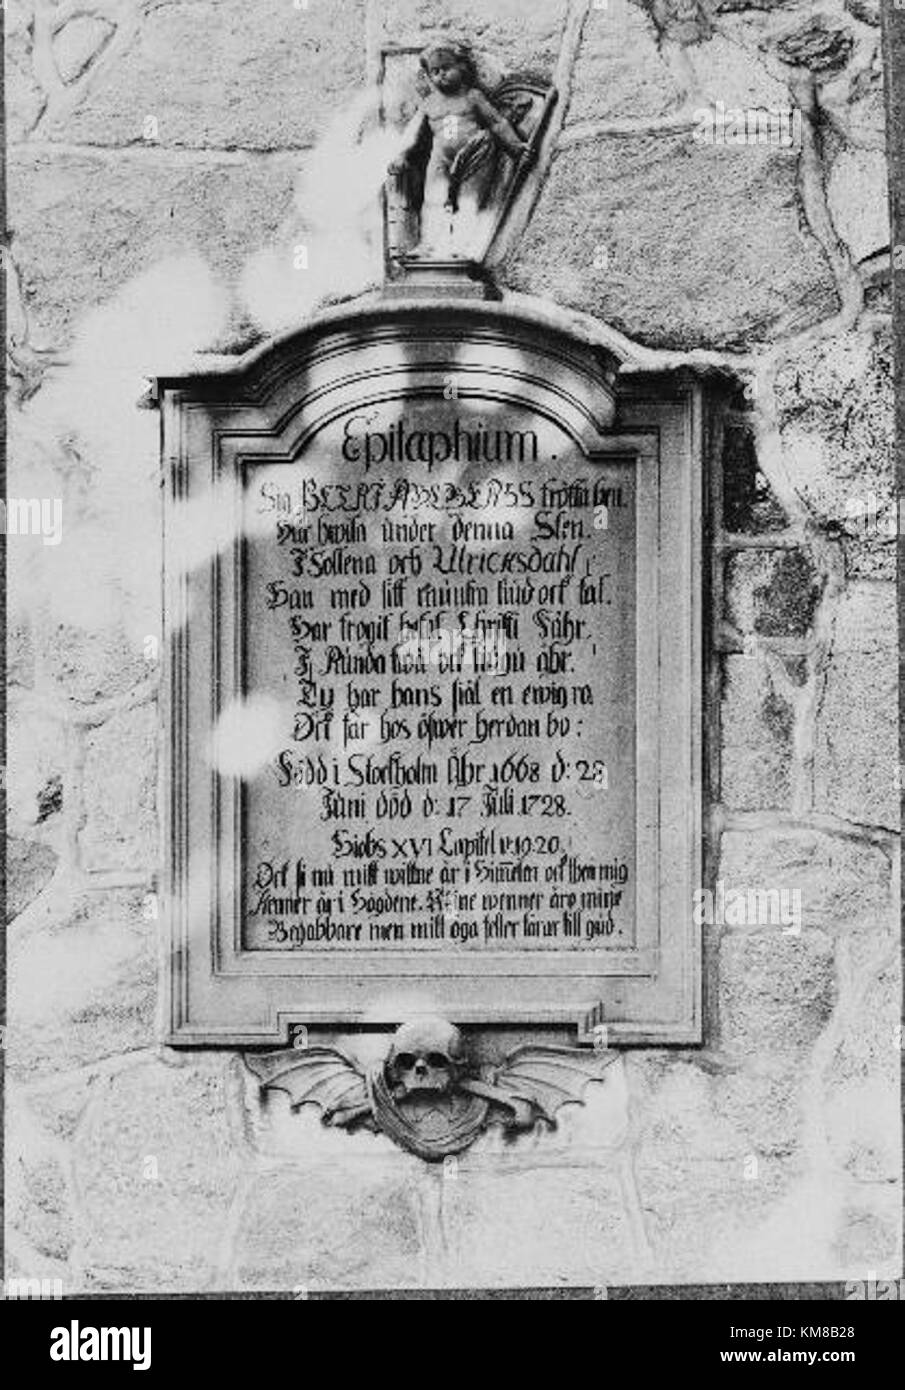 Epitaphium.
under denna Sten.
I Sollena och Ulricksdahl,
Han med sitt kund ock tal.
Har trogit Christi Fåhr.
I Runda två ock tiugu åhr.
Ty har hans siäl en ewig ro
Ock får hos öfwer herdan bo:
Född i Stockholm Åhr 1668 d: 28
Juni död d: 17 Juli 1728.
Hiobs XVI Capitel v: 19.20.
Ock si nu mitt wittne är i Himelen ock then mig
Kenner är i Högdene. Mine wenner äro mine
Begabbare men mitt öga feller tårar till gud.
alamy
KM8B28
www.alamy.com